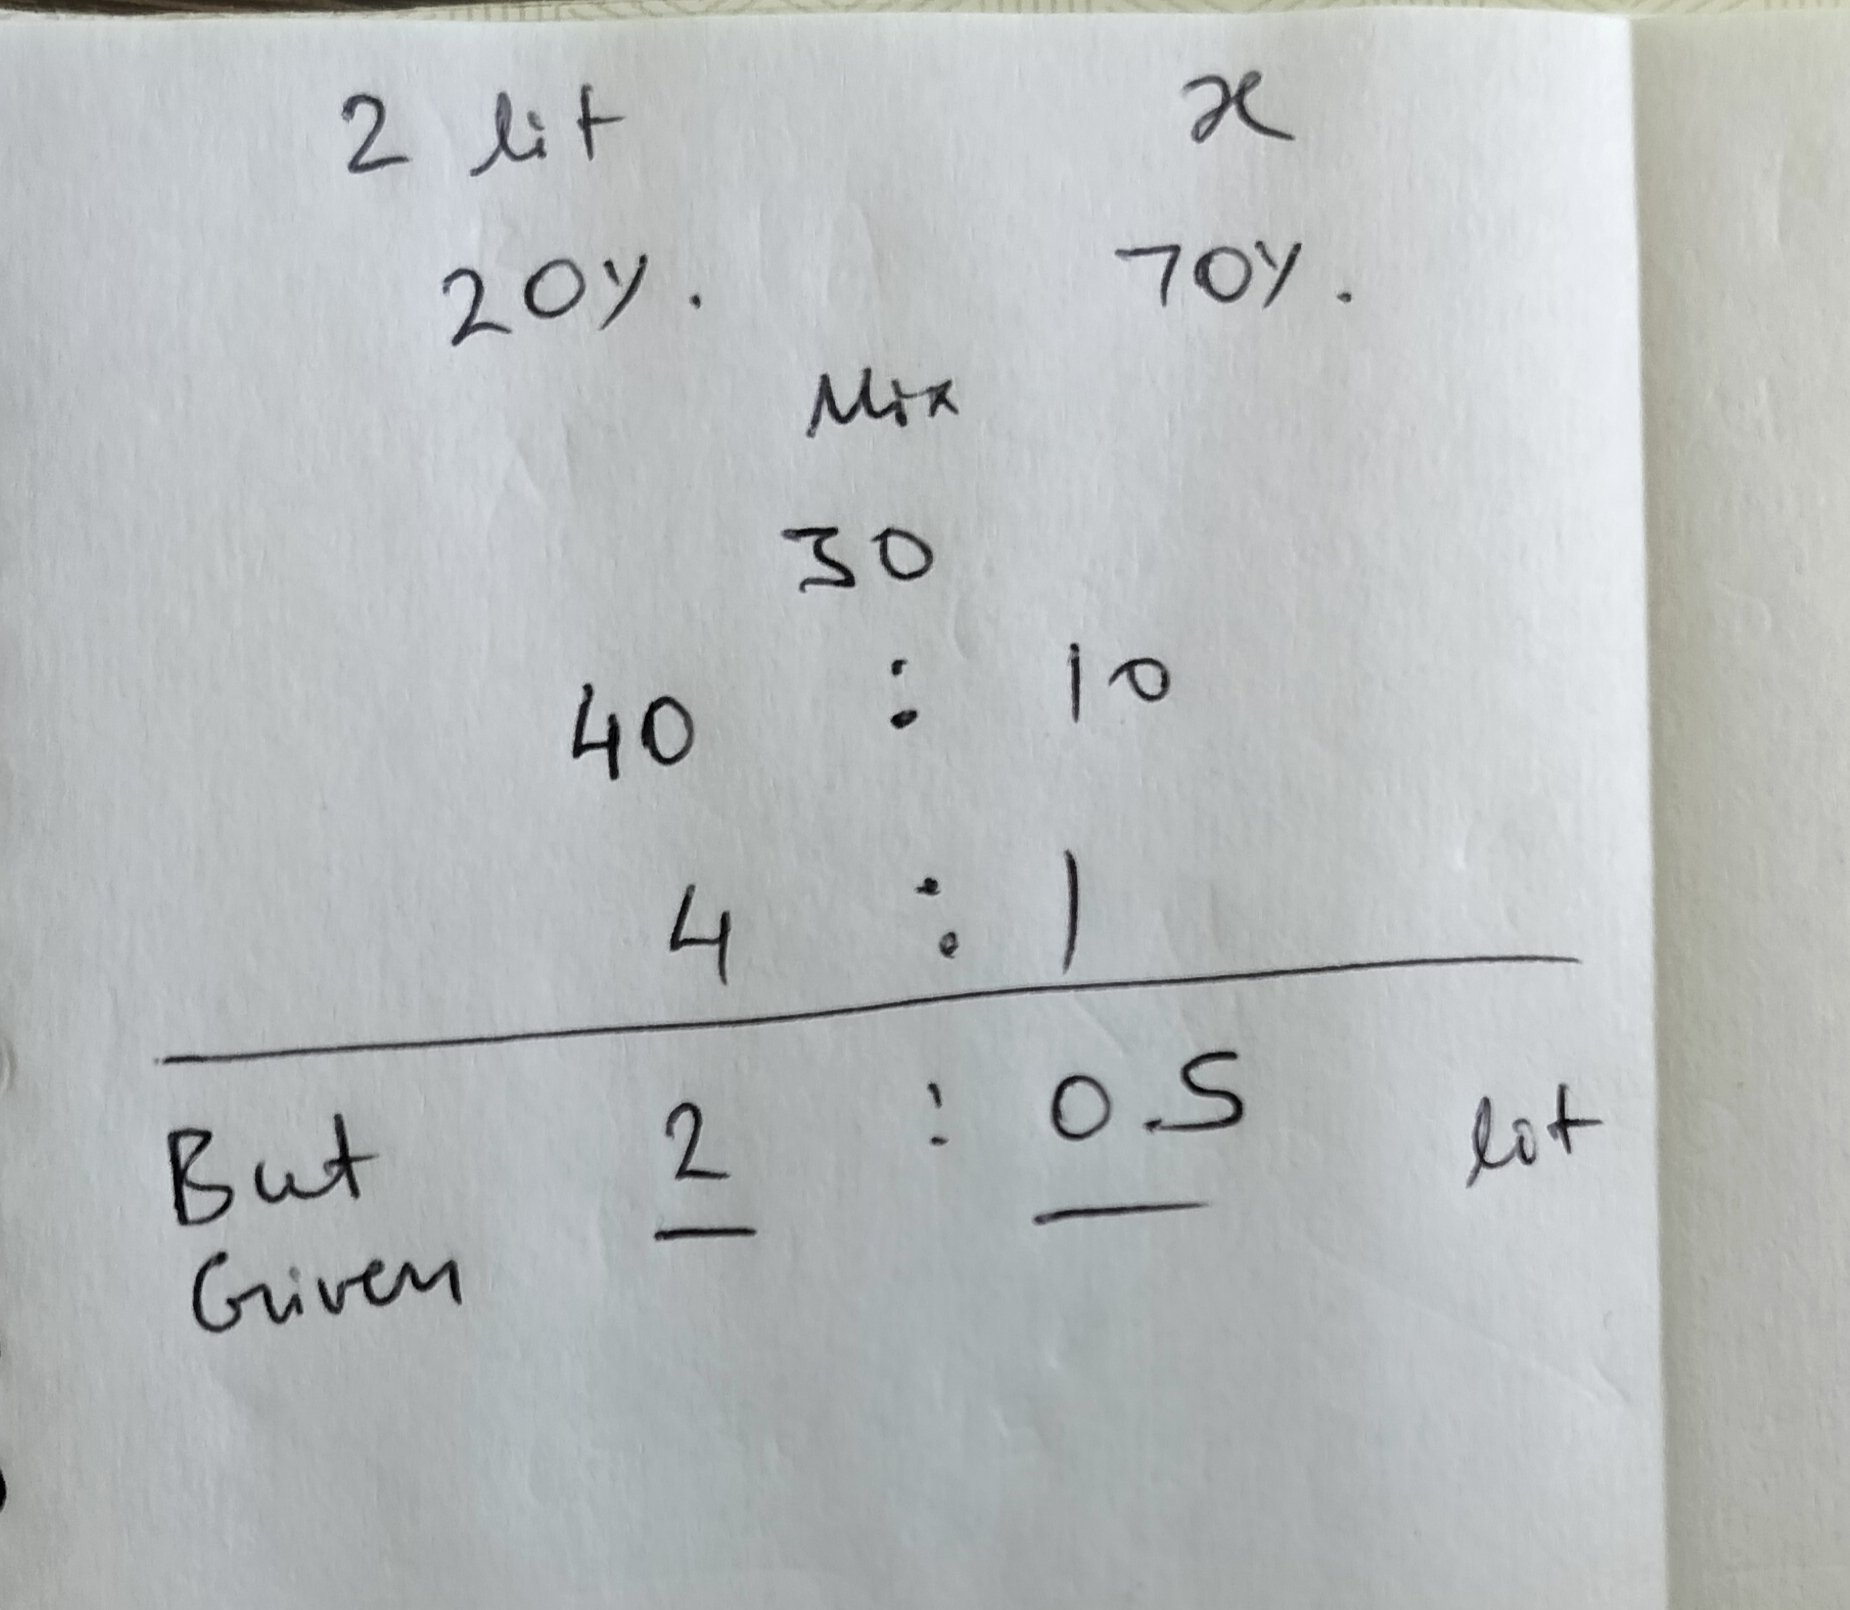 2 lit x
20%. 70%.
Mix
30
40 : 10
4 : 1
But 2 : 0.5 lit
Given